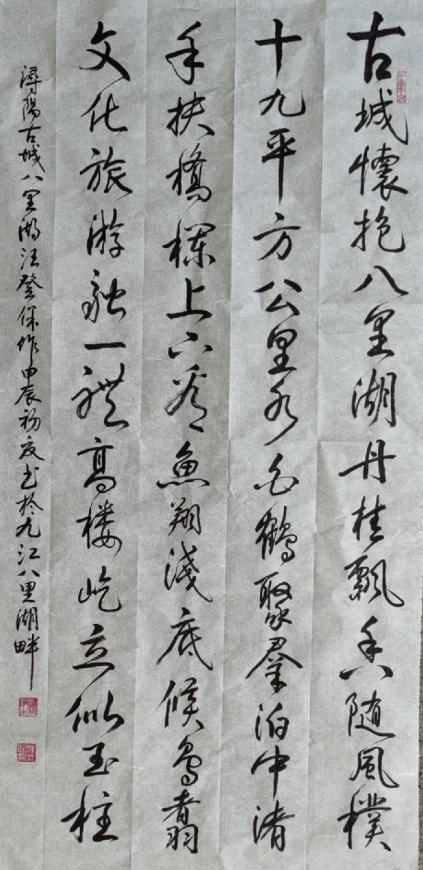 古城懷抱八里湖丹桂飄香隨風樸
十九平方公里水白鶴聚羣泊中渚
手扶橋欄上下看魚翔淺底候鳥翥
文化旅游融一體高樓屹立似玉柱
潯陽古城八里湖汪登保作甲辰初夏书於九江八里湖畔